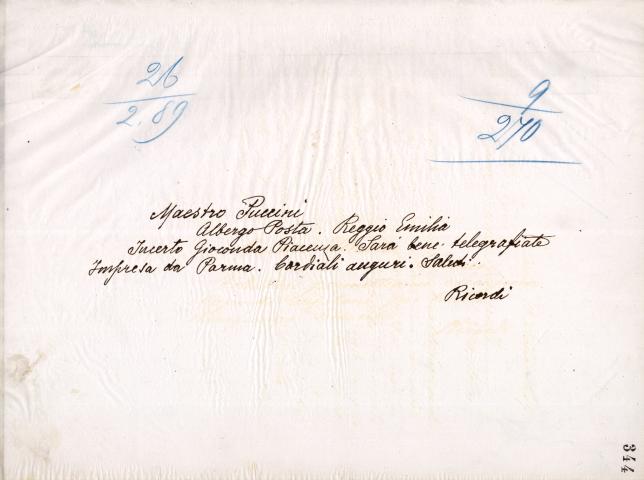 26
2.89
9
270
Maestro Puccini
Albergo Posta. Reggio Emilia
Incerto Gioconda Piacenza. Sarà bene telegrafiate
Impresa da Parma. Cordiali auguri. Saluti.
Ricordi
344